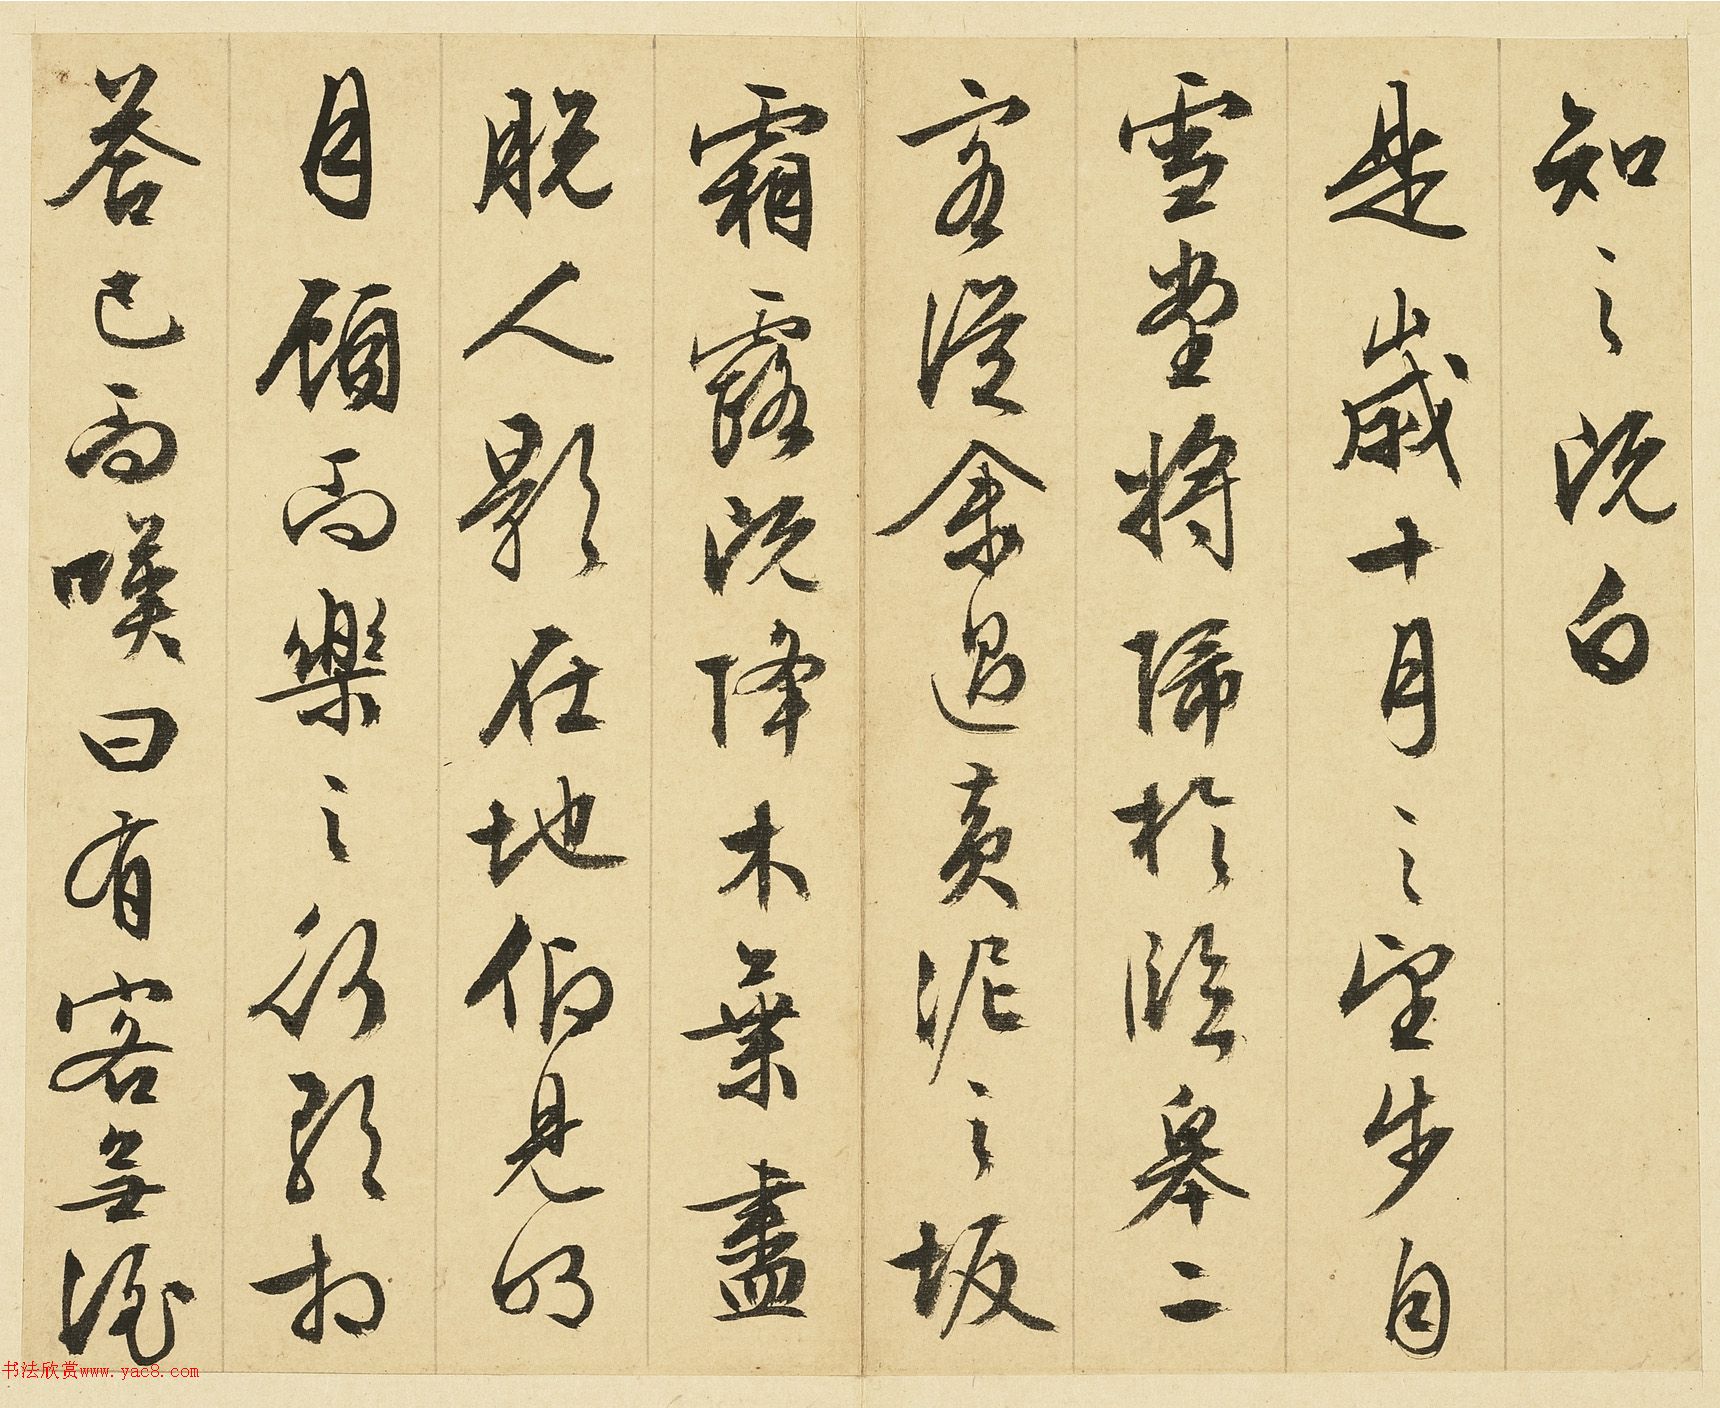 知之既白
是歲十月之望步自
雪堂將歸於臨皋二
客從余過黃泥之坂
霜露既降木葉盡
脫人影在地仰見明
月顧而樂之行歌相
答已而嘆曰有客無酒
书法欣赏www.yac8.com